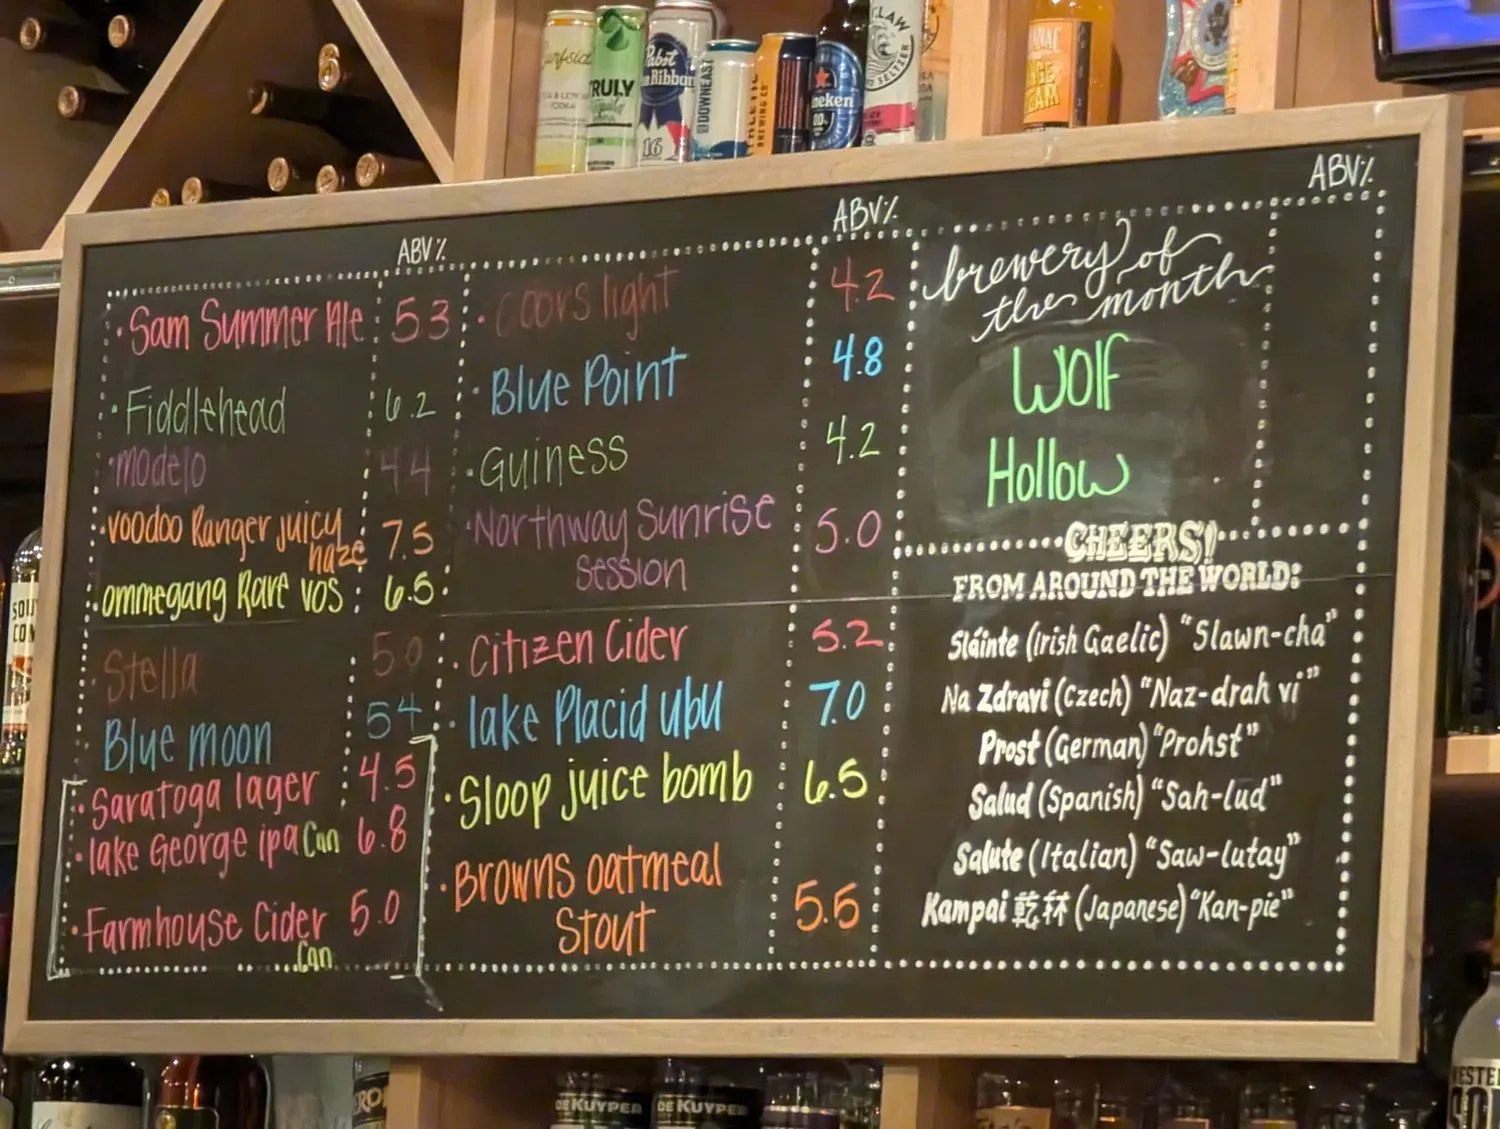 Surfside
TRULY
Pabst
Blue Ribbon
16
DOWNEAST
BREWING CO
Heineken
CLAW
SELTZER
ABV%
ABV%
ABV%
· Sam Summer Ale 5.3
· Fiddlehead 6.2
· Modelo 4.4
· Voodoo Ranger juicy
haze 7.5
· ommegang Rare vos 6.5
· Stella 5.0
Blue moon 5.4
· Saratoga lager 4.5
· lake George ipa Can 6.8
· Farmhouse Cider 5.0
Can
· Coors light 4.2
· Blue Point 4.8
· Guiness 4.2
· Northway Sunrise
Session 5.0
· Citizen Cider 5.2
· lake Placid ubu 7.0
· Sloop juice bomb 6.5
· Browns oatmeal
Stout 5.5
brewery of
the month
Wolf
Hollow
CHEERS!
FROM AROUND THE WORLD:
Sláinte (Irish Gaelic) "Slawn-cha"
Na Zdravi (Czech) "Naz-drah vi"
Prost (German) "Prohst"
Salud (Spanish) "Sah-lud"
Salute (Italian) "Saw-lutay"
Kampai 乾杯 (Japanese) "Kan-pie"
DE KUYPER
DE KUYPER